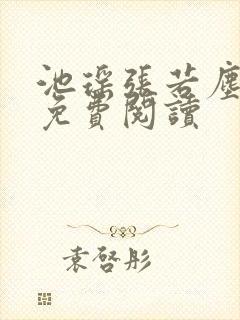 池瑤張若塵
免費閱讀
袁啓彤